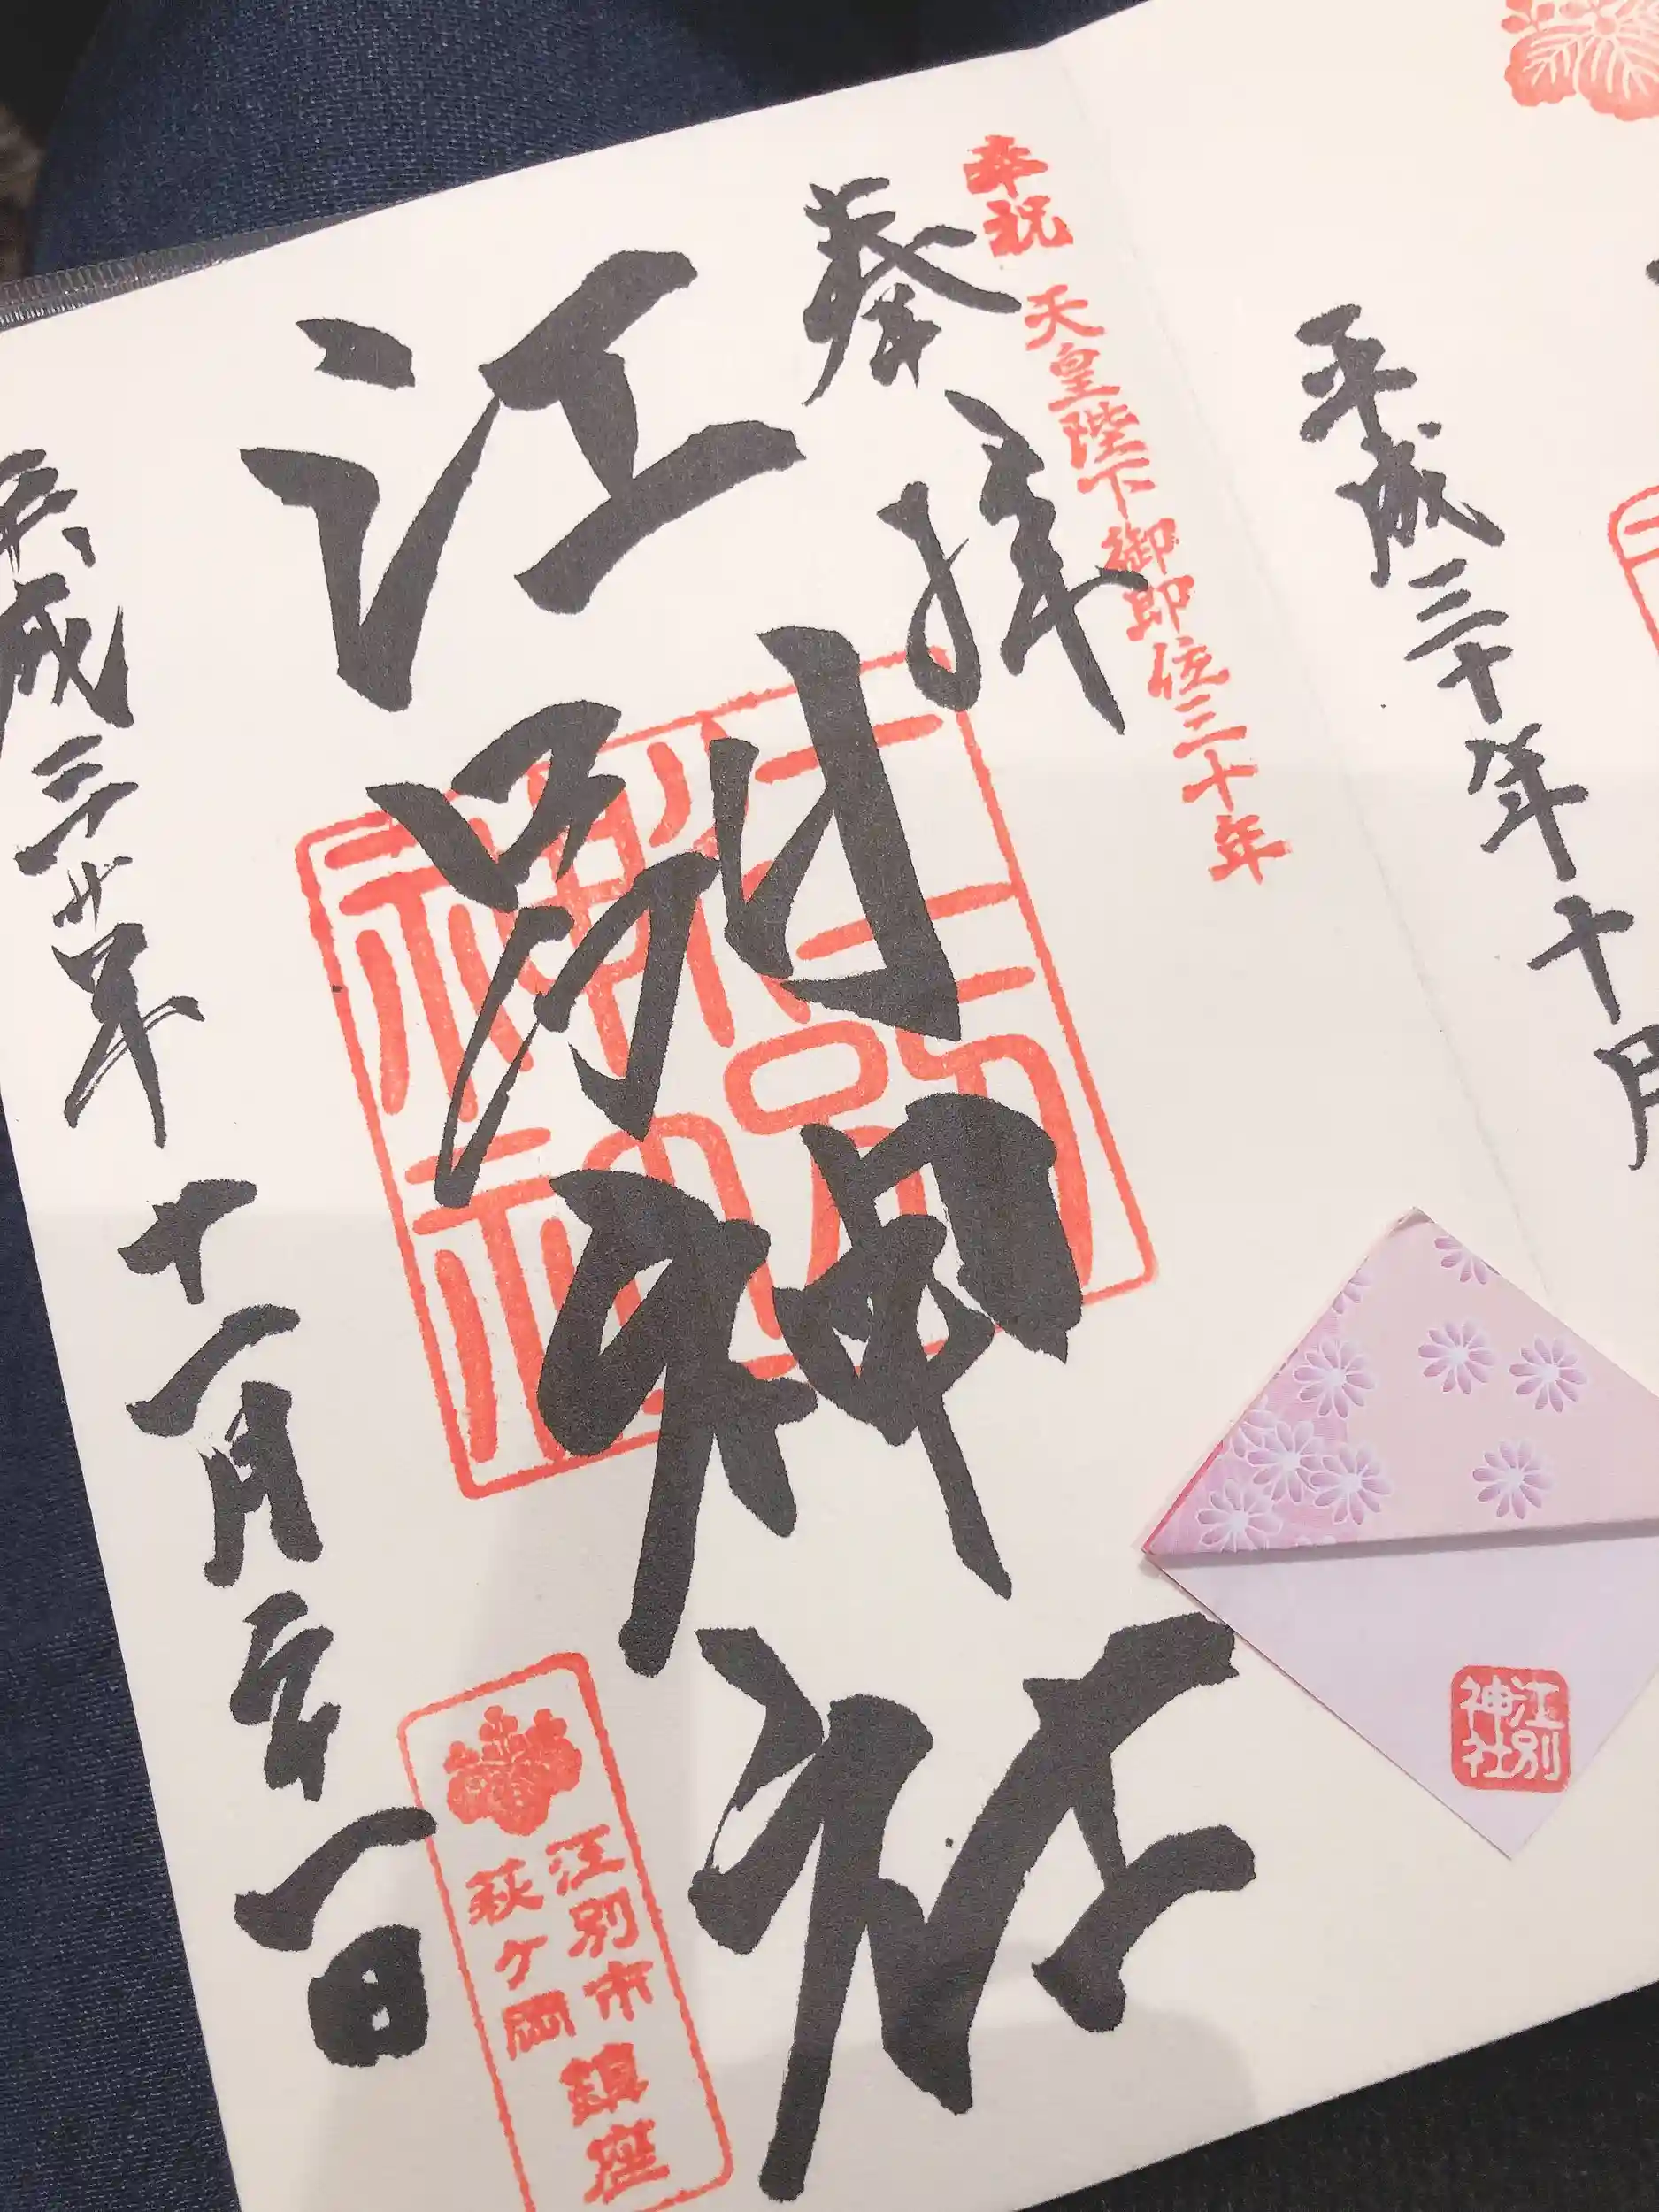 平成三十年十月
奉祝 天皇陛下御即位三十年
奉拝
江別神社
平成三十年十一月二一日
江別市
萩ヶ岡
鎮座
江別
神社